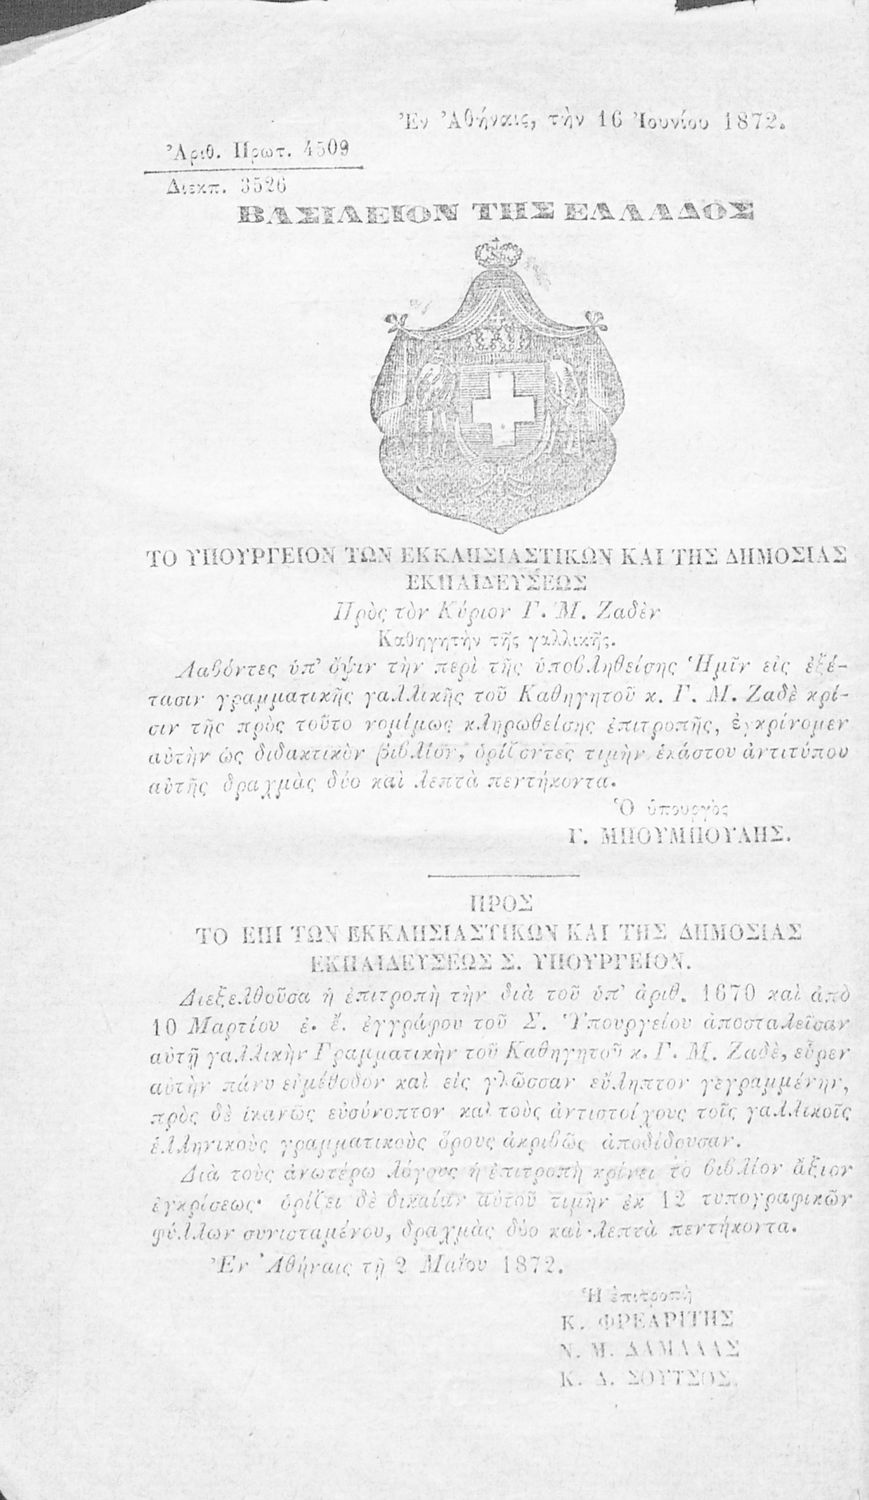 Ἐν Ἀθήναις, τὴν 16 Ἰουνίου 1872.
Ἀριθ. Πρωτ. 4509
Διεκπ. 3526
ΒΑΣΙΛΕΙΟΝ ΤΗΣ ΕΛΛΑΔΟΣ
ΤΟ ΥΠΟΥΡΓΕΙΟΝ ΤΩΝ ΕΚΚΛΗΣΙΑΣΤΙΚΩΝ ΚΑΙ ΤΗΣ ΔΗΜΟΣΙΑΣ
ΕΚΠΑΙΔΕΥΣΕΩΣ
Πρὸς τὸν Κύριον Γ. Μ. Ζαδὲν
Καθηγητὴν τῆς γαλλικῆς.
Λαβόντες ὑπ' ὄψιν τὴν περὶ τῆς ὑποβληθείσης Ἡμῖν εἰς ἐξέ-
τασιν γραμματικῆς γαλλικῆς τοῦ Καθηγητοῦ κ. Γ. Μ. Ζαδὲ κρί-
σιν τῆς πρὸς τοῦτο νομίμως κληρωθείσης ἐπιτροπῆς, ἐγκρίνομεν
αὐτὴν ὡς διδακτικὸν βιβλίον, ὁρίζοντες τιμὴν ἑκάστου ἀντιτύπου
αὐτῆς δραχμὰς δύο καὶ λεπτὰ πεντήκοντα.
Ὁ ὑπουργὸς
Γ. ΜΠΟΥΜΠΟΥΛΗΣ.
ΠΡΟΣ
ΤΟ ΕΠΙ ΤΩΝ ΕΚΚΛΗΣΙΑΣΤΙΚΩΝ ΚΑΙ ΤΗΣ ΔΗΜΟΣΙΑΣ
ΕΚΠΑΙΔΕΥΣΕΩΣ Σ. ΥΠΟΥΡΓΕΙΟΝ.
Διεξελθοῦσα ἡ ἐπιτροπὴ τὴν διὰ τοῦ ὑπ' ἀριθ. 1670 καὶ ἀπὸ
10 Μαρτίου ἐ. ἔ. ἐγγράφου τοῦ Σ. Ὑπουργείου ἀποσταλεῖσαν
αὐτῇ γαλλικὴν Γραμματικὴν τοῦ Καθηγητοῦ κ. Γ. Μ. Ζαδὲ, εὗρεν
αὐτὴν πάνυ εὐμέθοδον καὶ εἰς γλῶσσαν εὔληπτον γεγραμμένην,
πρὸς δὲ ἱκανῶς εὐσύνοπτον καὶ τοὺς ἀντιστοίχους τοῖς γαλλικοῖς
ἑλληνικοὺς γραμματικοὺς ὅρους ἀκριβῶς ἀποδίδουσαν.
Διὰ τοὺς ἀνωτέρω λόγους ἡ ἐπιτροπὴ κρίνει τὸ βιβλίον ἄξιον
ἐγκρίσεως· ὁρίζει δὲ δικαίαν αὐτοῦ τιμὴν ἐκ 12 τυπογραφικῶν
φύλλων συνισταμένου, δραχμὰς δύο καὶ λεπτὰ πεντήκοντα.
Ἐν Ἀθήναις τῇ 2 Μαΐου 1872.
Ἡ ἐπιτροπὴ
Κ. ΦΡΕΑΡΙΤΗΣ
Ν. Μ. ΔΑΜΑΛΑΣ
Κ. Δ. ΣΟΥΤΣΟΣ.